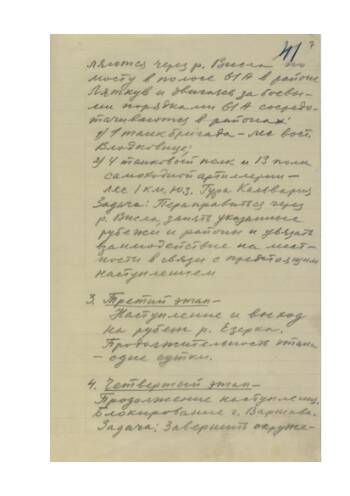 41 7
вляются через р. Висла по
мосту в полосе 61А в районе
и двигаясь за боевы-
ми порядками 61А сосредо-
тачиваются в районах:
1) 1 танк бригада – лес вост.
2) 4 танковый полк и 13 полк
самоходной артиллерии –
лес 1 км. юз. Гура Кальвария
Задача: Переправиться через
р. Висла, занять указанные
рубежи и районы и увязать
взаимодействие на мест-
ности в связи с предстоящим
наступлением
3. Третий этап –
Наступление и выход
на рубеж р. Езерка.
Продолжительность этапа
– одне сутки.
4. Четвертый этап –
Продолжение наступления,
блокирование г. Варшава.
Задача: Завершить окруже-